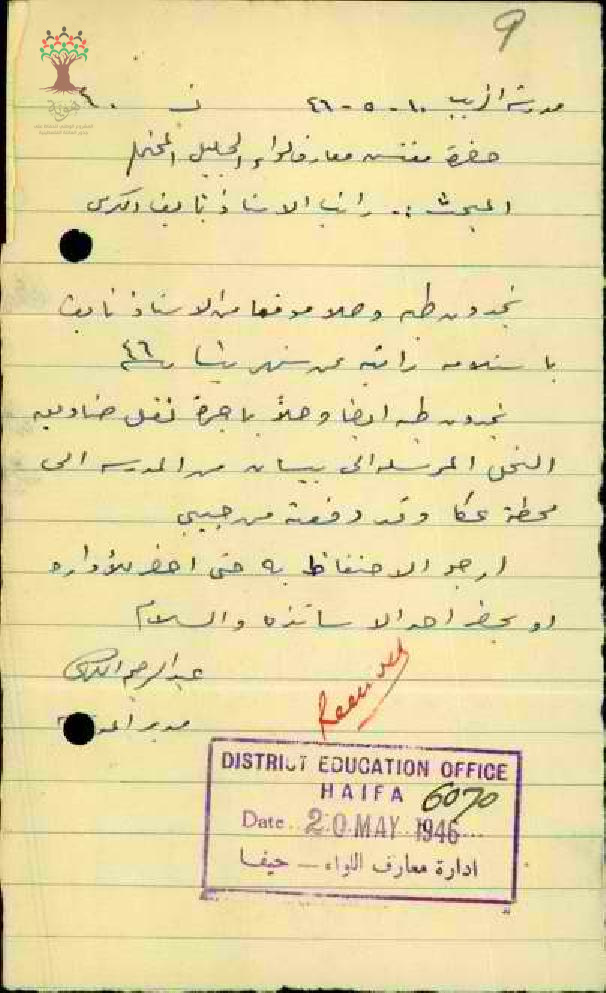 9
مدرسة الزيب ١٠-٥-٤٦
حضرة مفتش معارف لواء الجليل المحترم
المبحث :. راتب الاستاذ نايف
تجدون طيه وصلا موقعا من الاستاذ نايف
باستلامه راتبه عن شهر نيسان سنة ٤٦
تجدون طيه ايضا وصلاً باجرة نقل صناديق
النحل المرسله الى بيسان من المدرسه الى
محطة عكا وقد دفعته من جيبي
ارجو الاحتفاظ به حتى احضر للاداره
او يحضر احد الاساتذه والسلام
عبد الرحيم
مدير المدرسة
Received
DISTRICT EDUCATION OFFICE
HAIFA 6070
Date 20 MAY 1946
ادارة معارف اللواء — حيفا